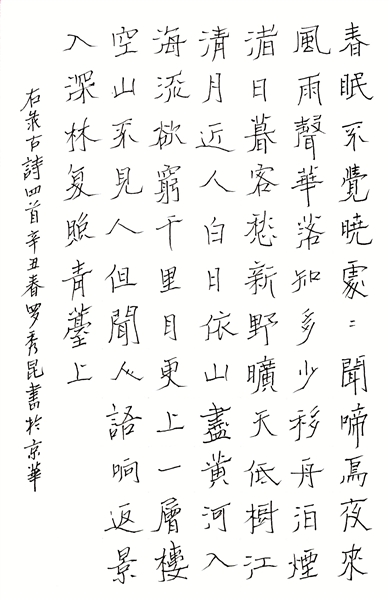 春眠不覺曉處〻聞啼鳥夜來
風雨聲華落知多少移舟泊煙
渚日暮客愁新野曠天低樹江
清月近人白日依山盡黄河入
海流欲窮千里目更上一層樓
空山不見人但聞人語响返景
入深林复照青薹上
右录古詩四首辛丑春罗秀昆書於京華